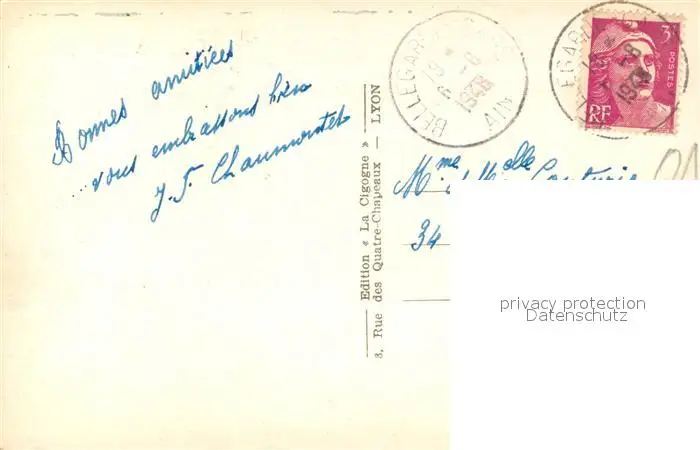 Bonnes amitiées
...vous embrassons bien
J.F. Chaumontet
Edition « La Cigogne »
3, Rue des Quatre-Chapeaux — LYON
BELLEGARDE
19 *
6 -8
1948
AIN
3F
POSTES
RF
1948
Mme Melle
34
privacy protection
Datenschutz